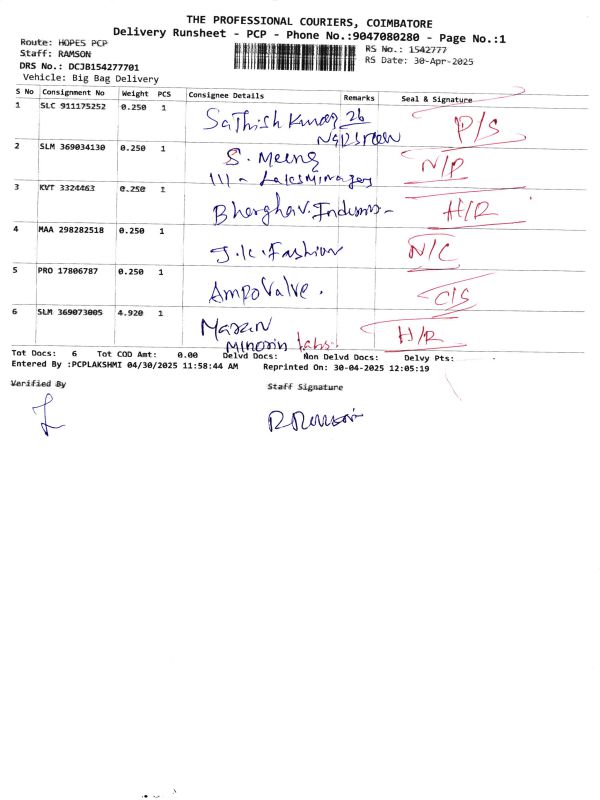 THE PROFESSIONAL COURIERS, COIMBATORE
Delivery Runsheet - PCP - Phone No.:9047080280 - Page No.:1
Route: HOPES PCP
RS No.: 1542777
Staff: RAMSON
RS Date: 30-Apr-2025
DRS No.: DCJB154277701
Vehicle: Big Bag Delivery
S No Consignment No Weight PCS Consignee Details Remarks Seal & Signature
1 SLC 911175252 0.250 1 Sathish Kumar 26 P/S
2 SLM 369034130 0.250 1 S. Meena N/P
111 -
3 KVT 3324463 0.250 1 Bharghav. H/R
4 MAA 298282518 0.250 1 J.K. Fashion N/C
5 PRO 17806787 0.250 1 Ampo Valve. C/S
6 SLM 369073005 4.920 1 H/R
labs.
Tot Docs: 6 Tot COD Amt: 0.00 Delvd Docs: Non Delvd Docs: Delvy Pts:
Entered By :PCPLAKSHMI 04/30/2025 11:58:44 AM Reprinted On: 30-04-2025 12:05:19
Verified By Staff Signature